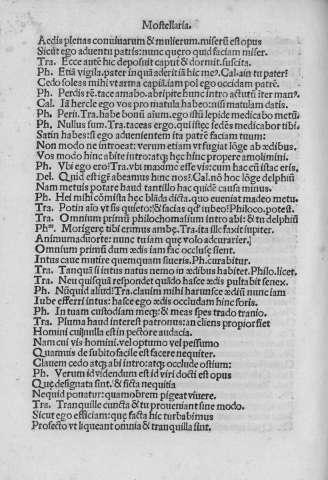 Mostellaria.
Aedis plenas conuiuarum & mulierum. miserũ est opus
Sicut ego aduentu patris: nunc quęro quid faciam miser.
Tra. Ecce autẽ hic deposuit caput & dormit. suscita.
Ph. Etiã vigila. pater inquã aderit iã hic me?. Cal. ain tu pater?
Cedo soleas mihi vt arma capiã. iam pol ego occidam patrẽ.
Ph. Perdis rẽ. tace amabo. abripite hunc intro actutũ iter man?.
Cal. Iã hercle ego vos pro matula habeo: nisi matulam datis.
Ph. Perii. Tra. habe bonũ aĩum. ego istũ lepide medicabo metũ.
Ph. Nullus sum. Tra. taceas ergo. qui istęc sedẽs medicabor tibi.
Satin habes: si ego aduenientem ita patrẽ faciam tuum:
Non modo ne introeat: verum etiam vt fugiat lõge ab ædibus.
Vos modo hinc abite intro: atq; hęc hinc propere amolimini.
Ph. Vbi ego ero? Tra. vbi maxime esse vis: cum hac cũ istac eris.
Del. Quid est igit̃ abeamus hinc nos? Cal. nõ hoc lõge delphiũ
Nam metuis potare haud tantillo hac quidẽ causa minus.
Ph. Hei mihi cõmista hęc blãda dicta. quo eueniat madeo metu.
Tra. Potin aĩo vt sis quieto: & facias qđ iubeo? Philoco. potest.
Tra. Omnium primũ philochomasium intro abi: & tu delphiũ
Phᵐ. Morigerę tibi erimus ambę. Tra. ita ille faxit iupiter.
Animum aduorte: nunc tu iam que volo adcurarier.
Omnium primũ dum ædis iam fac occlusę sient.
Intus caue mutire quemquam siueris. Ph. curabitur.
Tra. Tanquã si intus natus nemo in ædibus habitet. Philo. licet.
Tra. Neu quisquã respondeat quãdo hasce ædis pultabit senex.
Ph. Nũquid aliud? Tra. clauim mihi harunsce ædiũ nunc iam
Iube efferri intus: hasce ego ædis occludam hinc foris.
Ph. In tuam custodiam meq; & meas spes trado tranio.
Tra. Pluma haud interest patronus: an cliens propior siet
Homini cuĩ nulla est in pectore audacia.
Nam cui vis homini. vel optumo vel pessumo
Quamuis de subito facile est facere nequiter.
Clauem cedo atq; abi intro: atq; occlude ostium:
Ph. Verum id videndum est id viri docti est opus
Quę designata sint. & ficta nequitia
Nequid ponatur: quamobrem pigeat viuere.
Tra. Tranquille cuncta & tu proueniant sine modo.
Sicut ego efficiam: quę facta hic turbabimus
Profecto vt liqueant omnia & tranquilla sint.